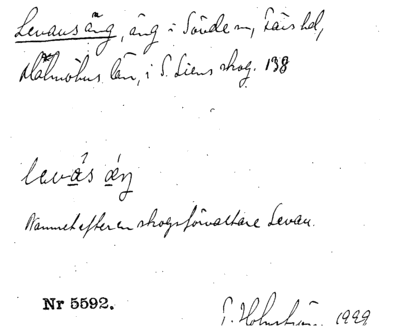 Levans äng, äng i Sövde sn, Färs hd,
Malmöhus län, i S. Liens skog. 138
levás ǽŋ
Namnet efter en skogsförvaltare Levan.
Nr 5592.
1929